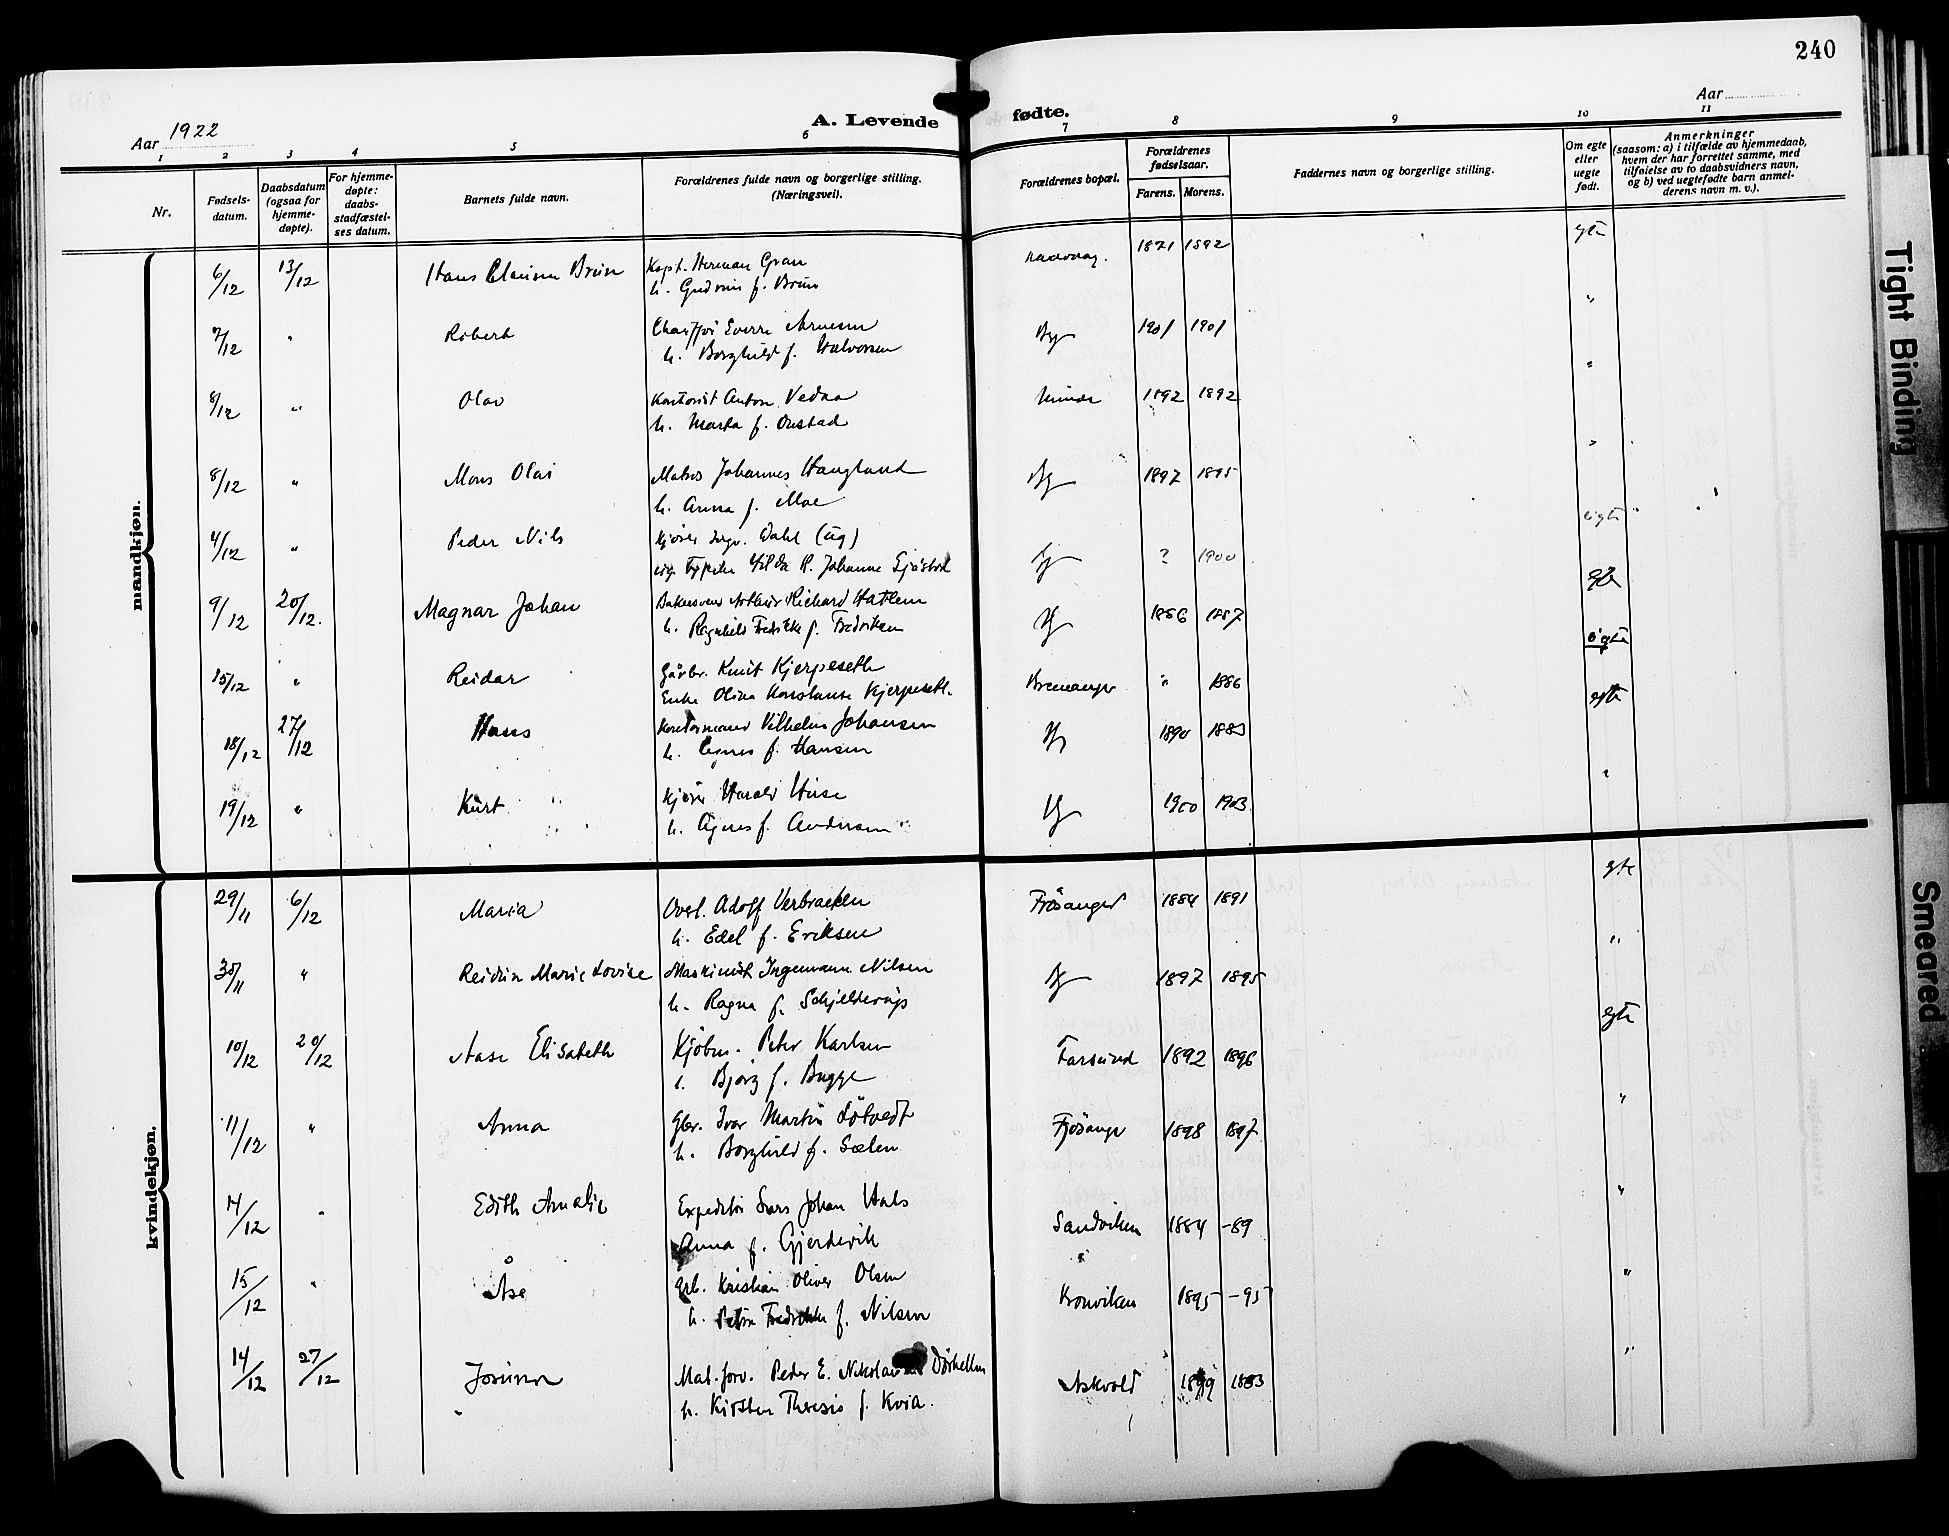 240
Aar 1922
A. Levende fødte.
Aar
1 2 3 4 5 6 7 8 9 10 11
Nr.
Fødsels-
datum.
Daabsdatum
(ogsaa for
hjemme-
døpte).
For hjemme-
døpte:
daabs-
stadfæstel-
ses datum.
Barnets fulde navn.
Forældrenes fulde navn og borgerlige stilling.
(Næringsvei).
Forældrenes bopæl.
Forældrenes
fødselsaar.
Farens. Morens.
Faddernes navn og borgerlige stilling.
Om egte
eller
uegte
født.
Anmerkninger
(saasom: a) i tilfælde av hjemmedaab,
hvem der har forrettet samme, med
tilføielse av to daabsvidners navn,
og b) ved uegtefødte barn anmel-
derens navn m. v.).
mandkjøn.
6/12 13/12 Hans Clausen Brun Kapt. Herman Gran 1871 1892 egte
h. Gudrun f. Brun
7/12 " Robert Chauffør Sverre Arnesen 1901 1901 "
h. Borghild f. Halvorsen
8/12 " Olav Kontorist Anton Vedaa Minde 1892 1892 "
h. Marta f. Onstad
8/12 " Mons Olai Matros Johannes Haugland 1897 1895 "
h. Anna f. Moe
4/12 " Peder Nils Dahl (ug) ? 1900
Hilda R. Johanne
9/12 20/12. Magnar Johan Richard Hatlem 1886 1887 egte
h. Ragnhild Fredrikke f. Fredriksen
15/12 " Reidar Gårbr. Knut Kjerpeseth Bremanger " 1886
Enke Olina Konstanse Kjerpeseth.
18/12 27/12 Hans Kontormand Vilhelm Johansen 1890 1883 egte
h. Agnes f. Hansen
19/12 " Kurt Kjører Harald Huse 1900 1903 "
h. Agnes f. Andersen
kvindekjøn.
29/11 6/12 Maria Overl. Adolf Verbraeken Fjøsanger 1884 1891 egte
h. Edel f. Eriksen
30/11 " Reidun Marie Lovise Maskinist Ingemann Nilsen 1897 1895 "
h. Ragna f. Schjelderup
10/12 20/12 Aase Elisabeth Kjøbm. Peter Karlsen Farsund 1892 1896 egte
h. Bjorg f. Bugge
11/12 " Anna Gbr. Ivar Martin Løtvedt Fjøsanger 1898 1897 "
h. Borghild f. Sælen
14/12 " Edith Amalie Expeditør Lars Johan Hals Sandviken 1884 -89 "
Anna f. Gjerdevik
15/12 " Åse Grb. Kristian Oliver Olsen Kronviken 1895 -95 "
h. Petra Fredrikke f. Nilsen
14/12 27/12 Jorunn Mat.forv. Peder E. Nikolai Askvold 1899 1883 "
h. Kirsten Theresio f. Kvia.
Tight Binding
Smeared